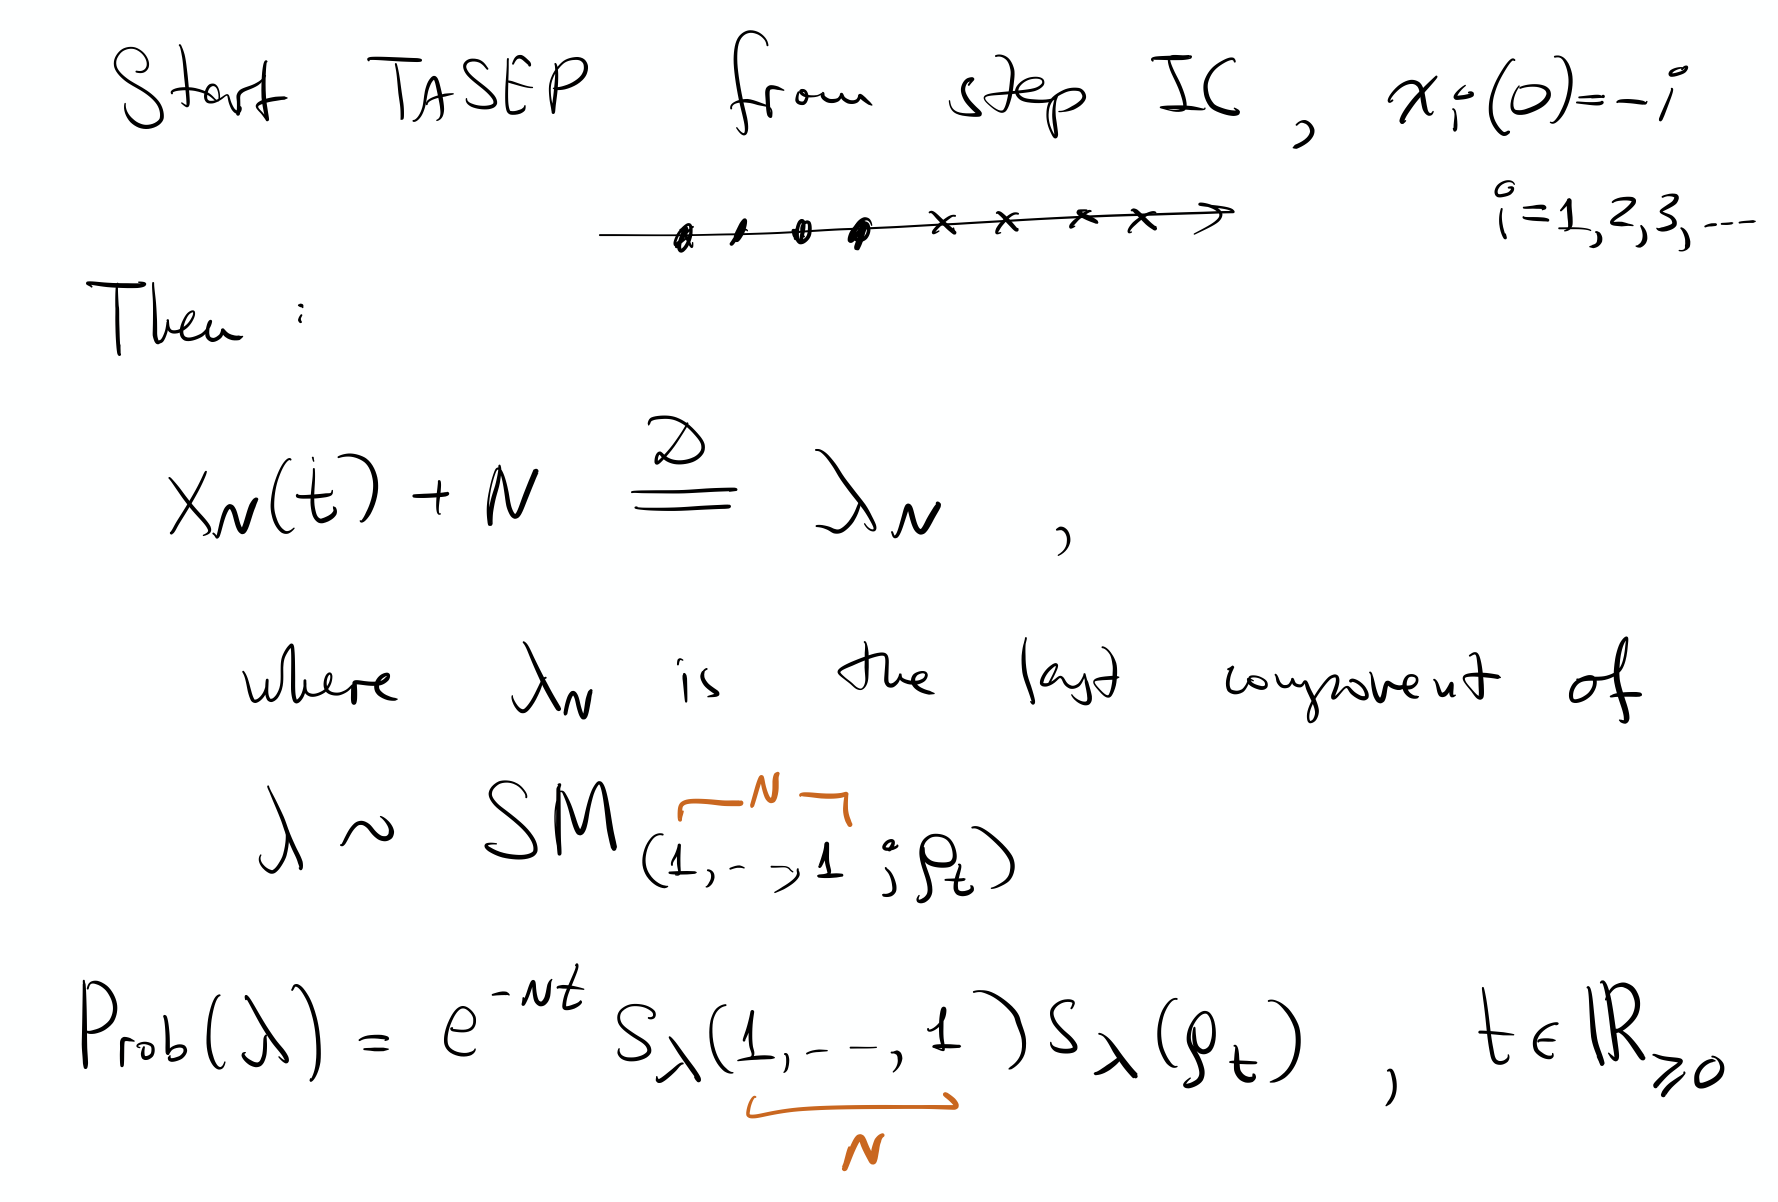 Start TASEP from step IC, x_i(0)=-i
i=1,2,3,...
Then:
x_N(t) + N =^D λ_N ,
where λ_N is the last component of
N
λ ~ SM_(1,...,1 ; ρ_t)
Prob(λ) = e^{-Nt} S_λ(1,...,1) S_λ(ρ_t) , t ∈ ℝ_≥0
N